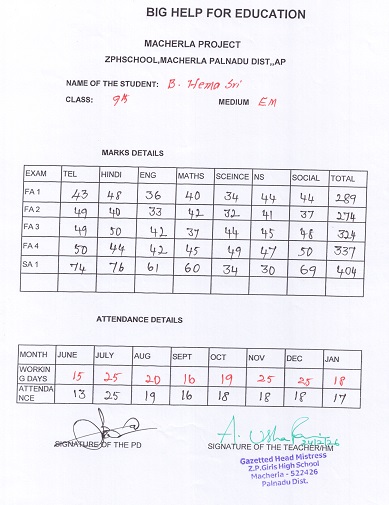 BIG HELP FOR EDUCATION
MACHERLA PROJECT
ZPHSCHOOL,MACHERLA PALNADU DIST,,AP
NAME OF THE STUDENT: B. Hema Sri
CLASS: 9th MEDIUM EM
MARKS DETAILS
EXAM TEL HINDI ENG MATHS SCEINCE NS SOCIAL TOTAL
FA 1 43 48 36 40 34 44 44 289
FA 2 49 40 33 42 32 41 37 274
FA 3 49 50 42 37 44 45 48 324
FA 4 50 44 42 45 49 47 50 337
SA 1 74 76 61 60 34 30 69 404
ATTENDANCE DETAILS
MONTH JUNE JULY AUG SEPT OCT NOV DEC JAN
WORKIN
G DAYS 15 25 20 16 19 25 25 18
ATTENDA
NCE 13 25 19 16 18 18 18 17
SIGNATURE OF THE PD SIGNATURE OF THE TEACHER/HM
Gazetted Head Mistress
Z.P.Girls High School
Macherla - 522426
Palnadu Dist.